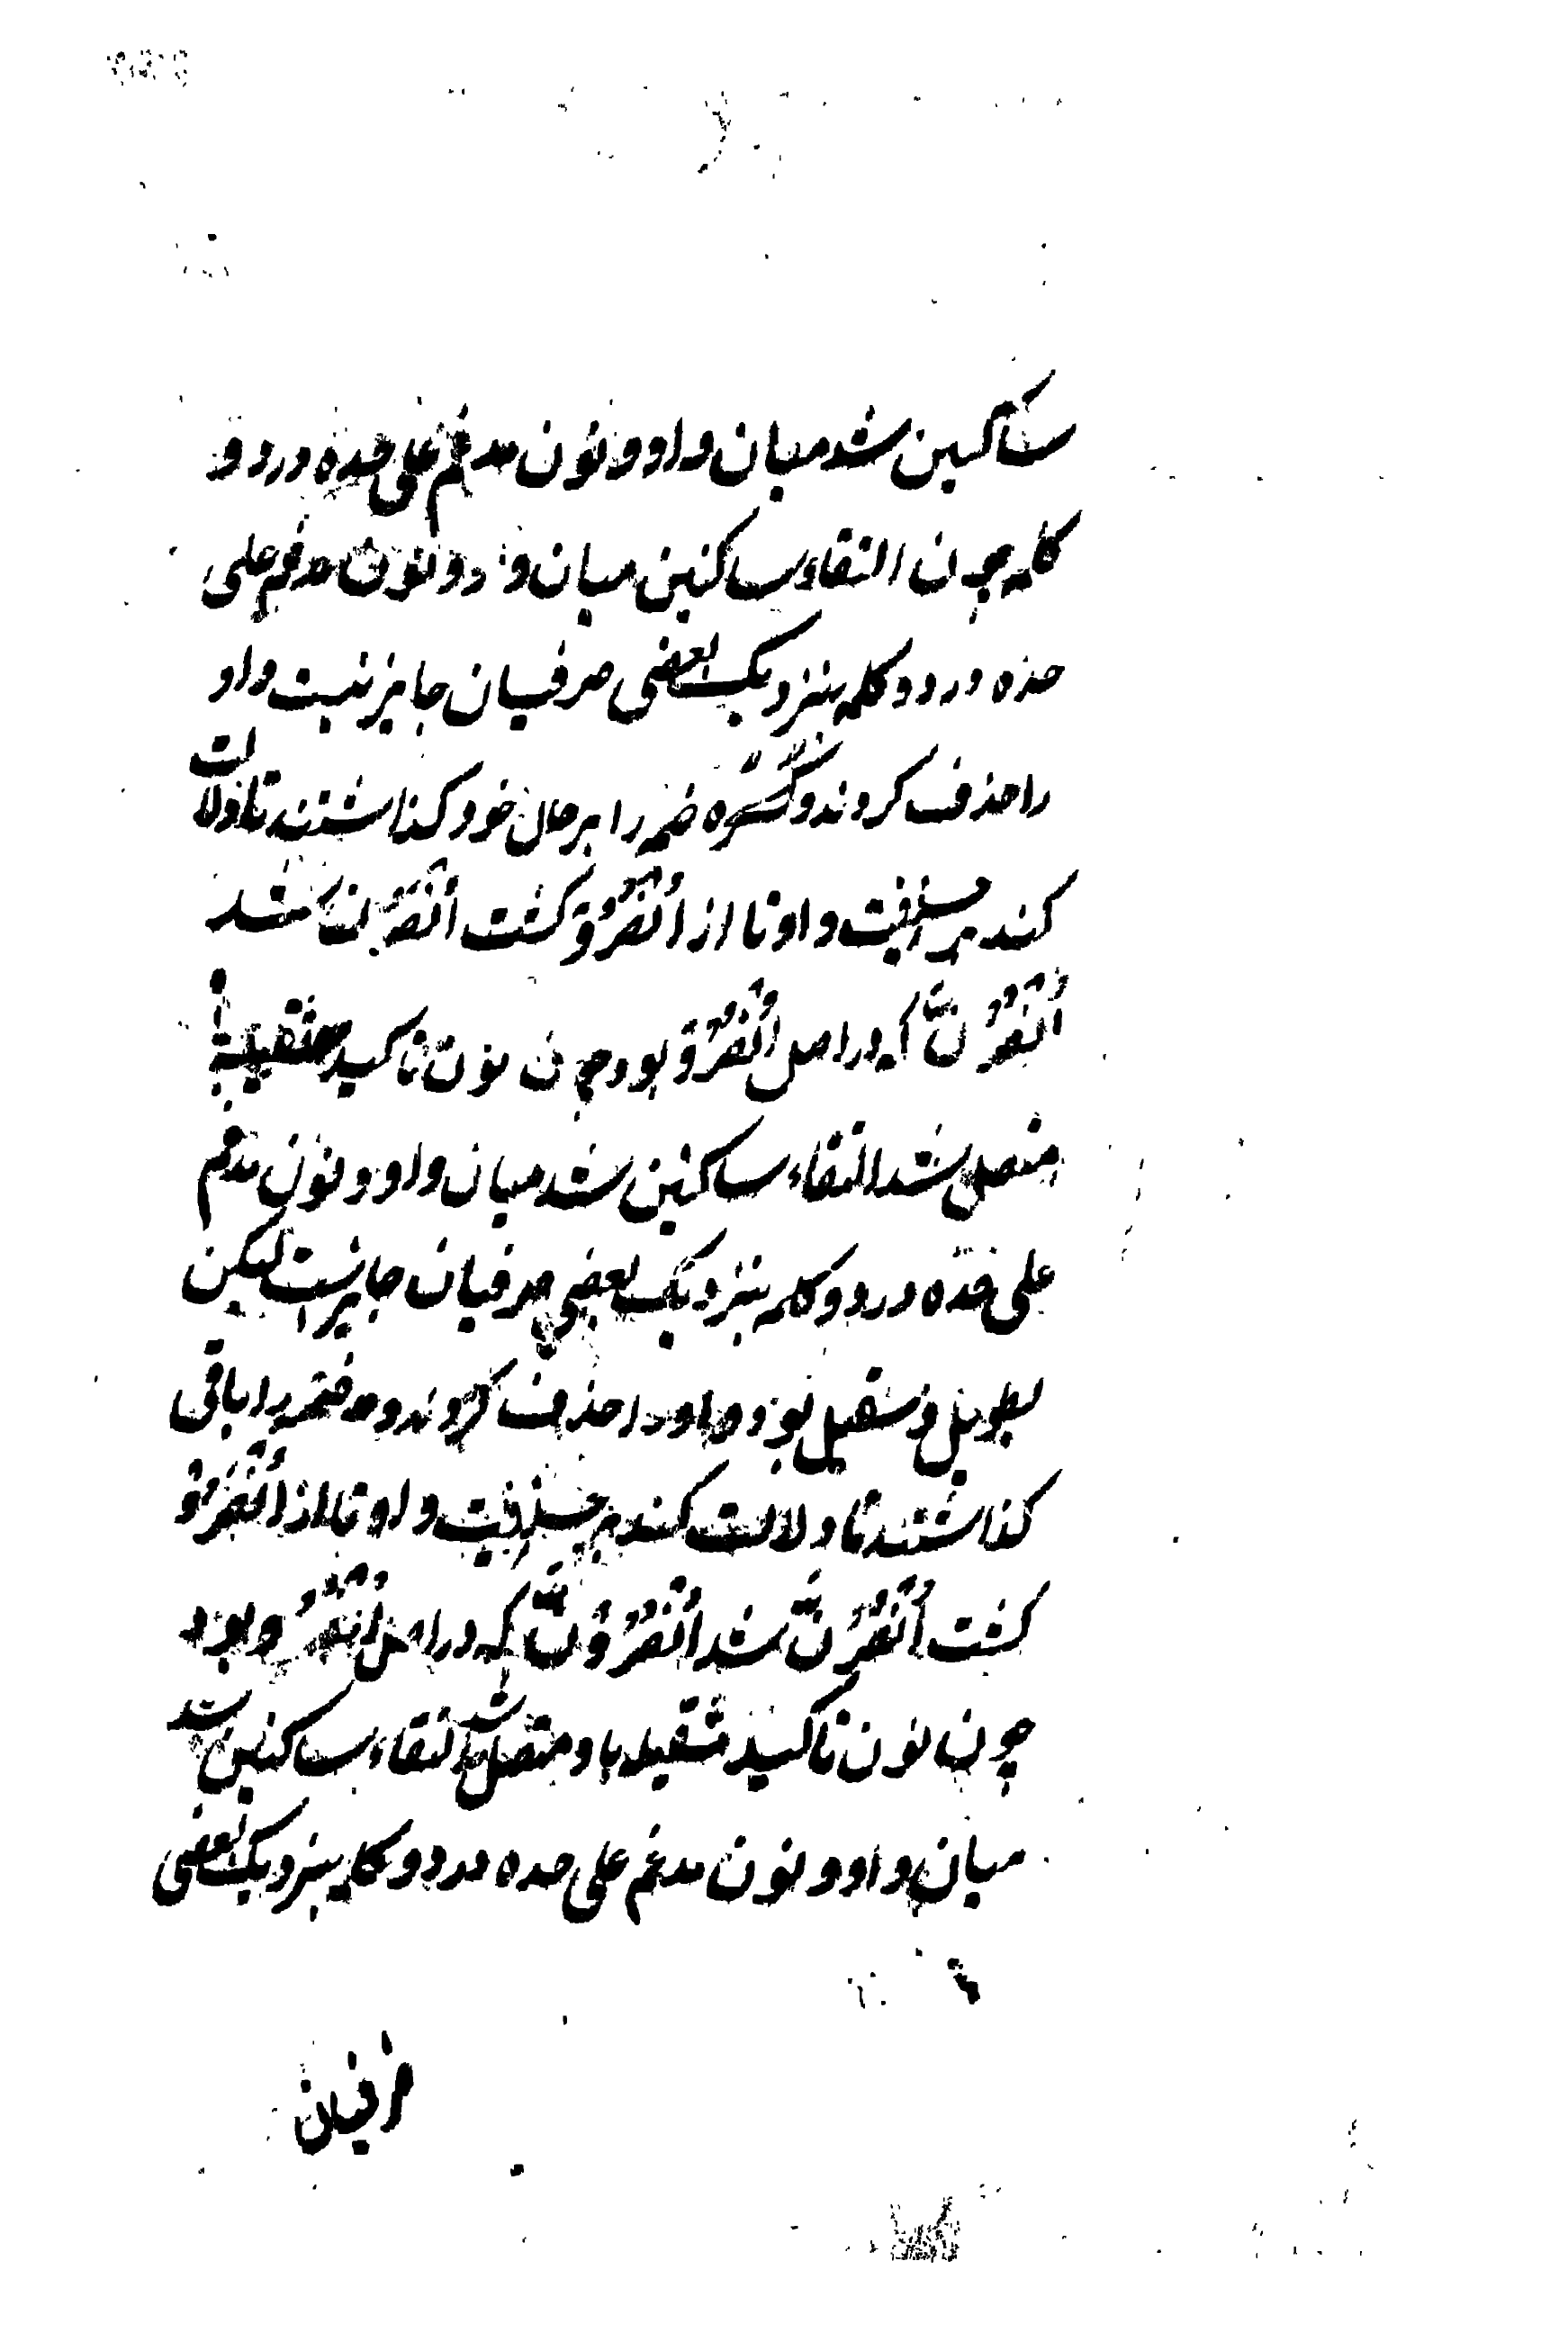 ساکنین شد میان واو و نون مدغم علی حده در دو
کلمه چون التقاء ساکنین میان واو و نون مدغم علی
حده در دو کلمه بنزدیک بعضی صرفیان جایز نیست واو
را حذف کردند و ضمه را بر حال خود کذاشتند تا دلالت
کند بر حذفیت واو تا از اُنْصُرُوْ کشت اُنْصُرُنَّ شد
اُنْصُرُنَّ که در اصل اُنْصُرُوْ بود چون نون تاکید ثقیله
متصل شد التقاء ساکنین شد میان واو و نون مدغم
علی حده در دو کلمه بنزدیک بعضی صرفیان جایز است لیکن
طویل و ثقیل بود واو را حذف کردند و ضمه را باقی
کذاشتند تا دلالت کند بر حذفیت واو تا از اُنْصُرُوْ
کشت اُنْصُرُنَّ شد اُنْصُرُوْنَّ که در اصل اُنْصُرُو بود
چون نون تاکید ثقیله باو متصل شد التقاء ساکنین شد
میان واو و نون مدغم علی حده در دو کلمه بنزدیک بعضی